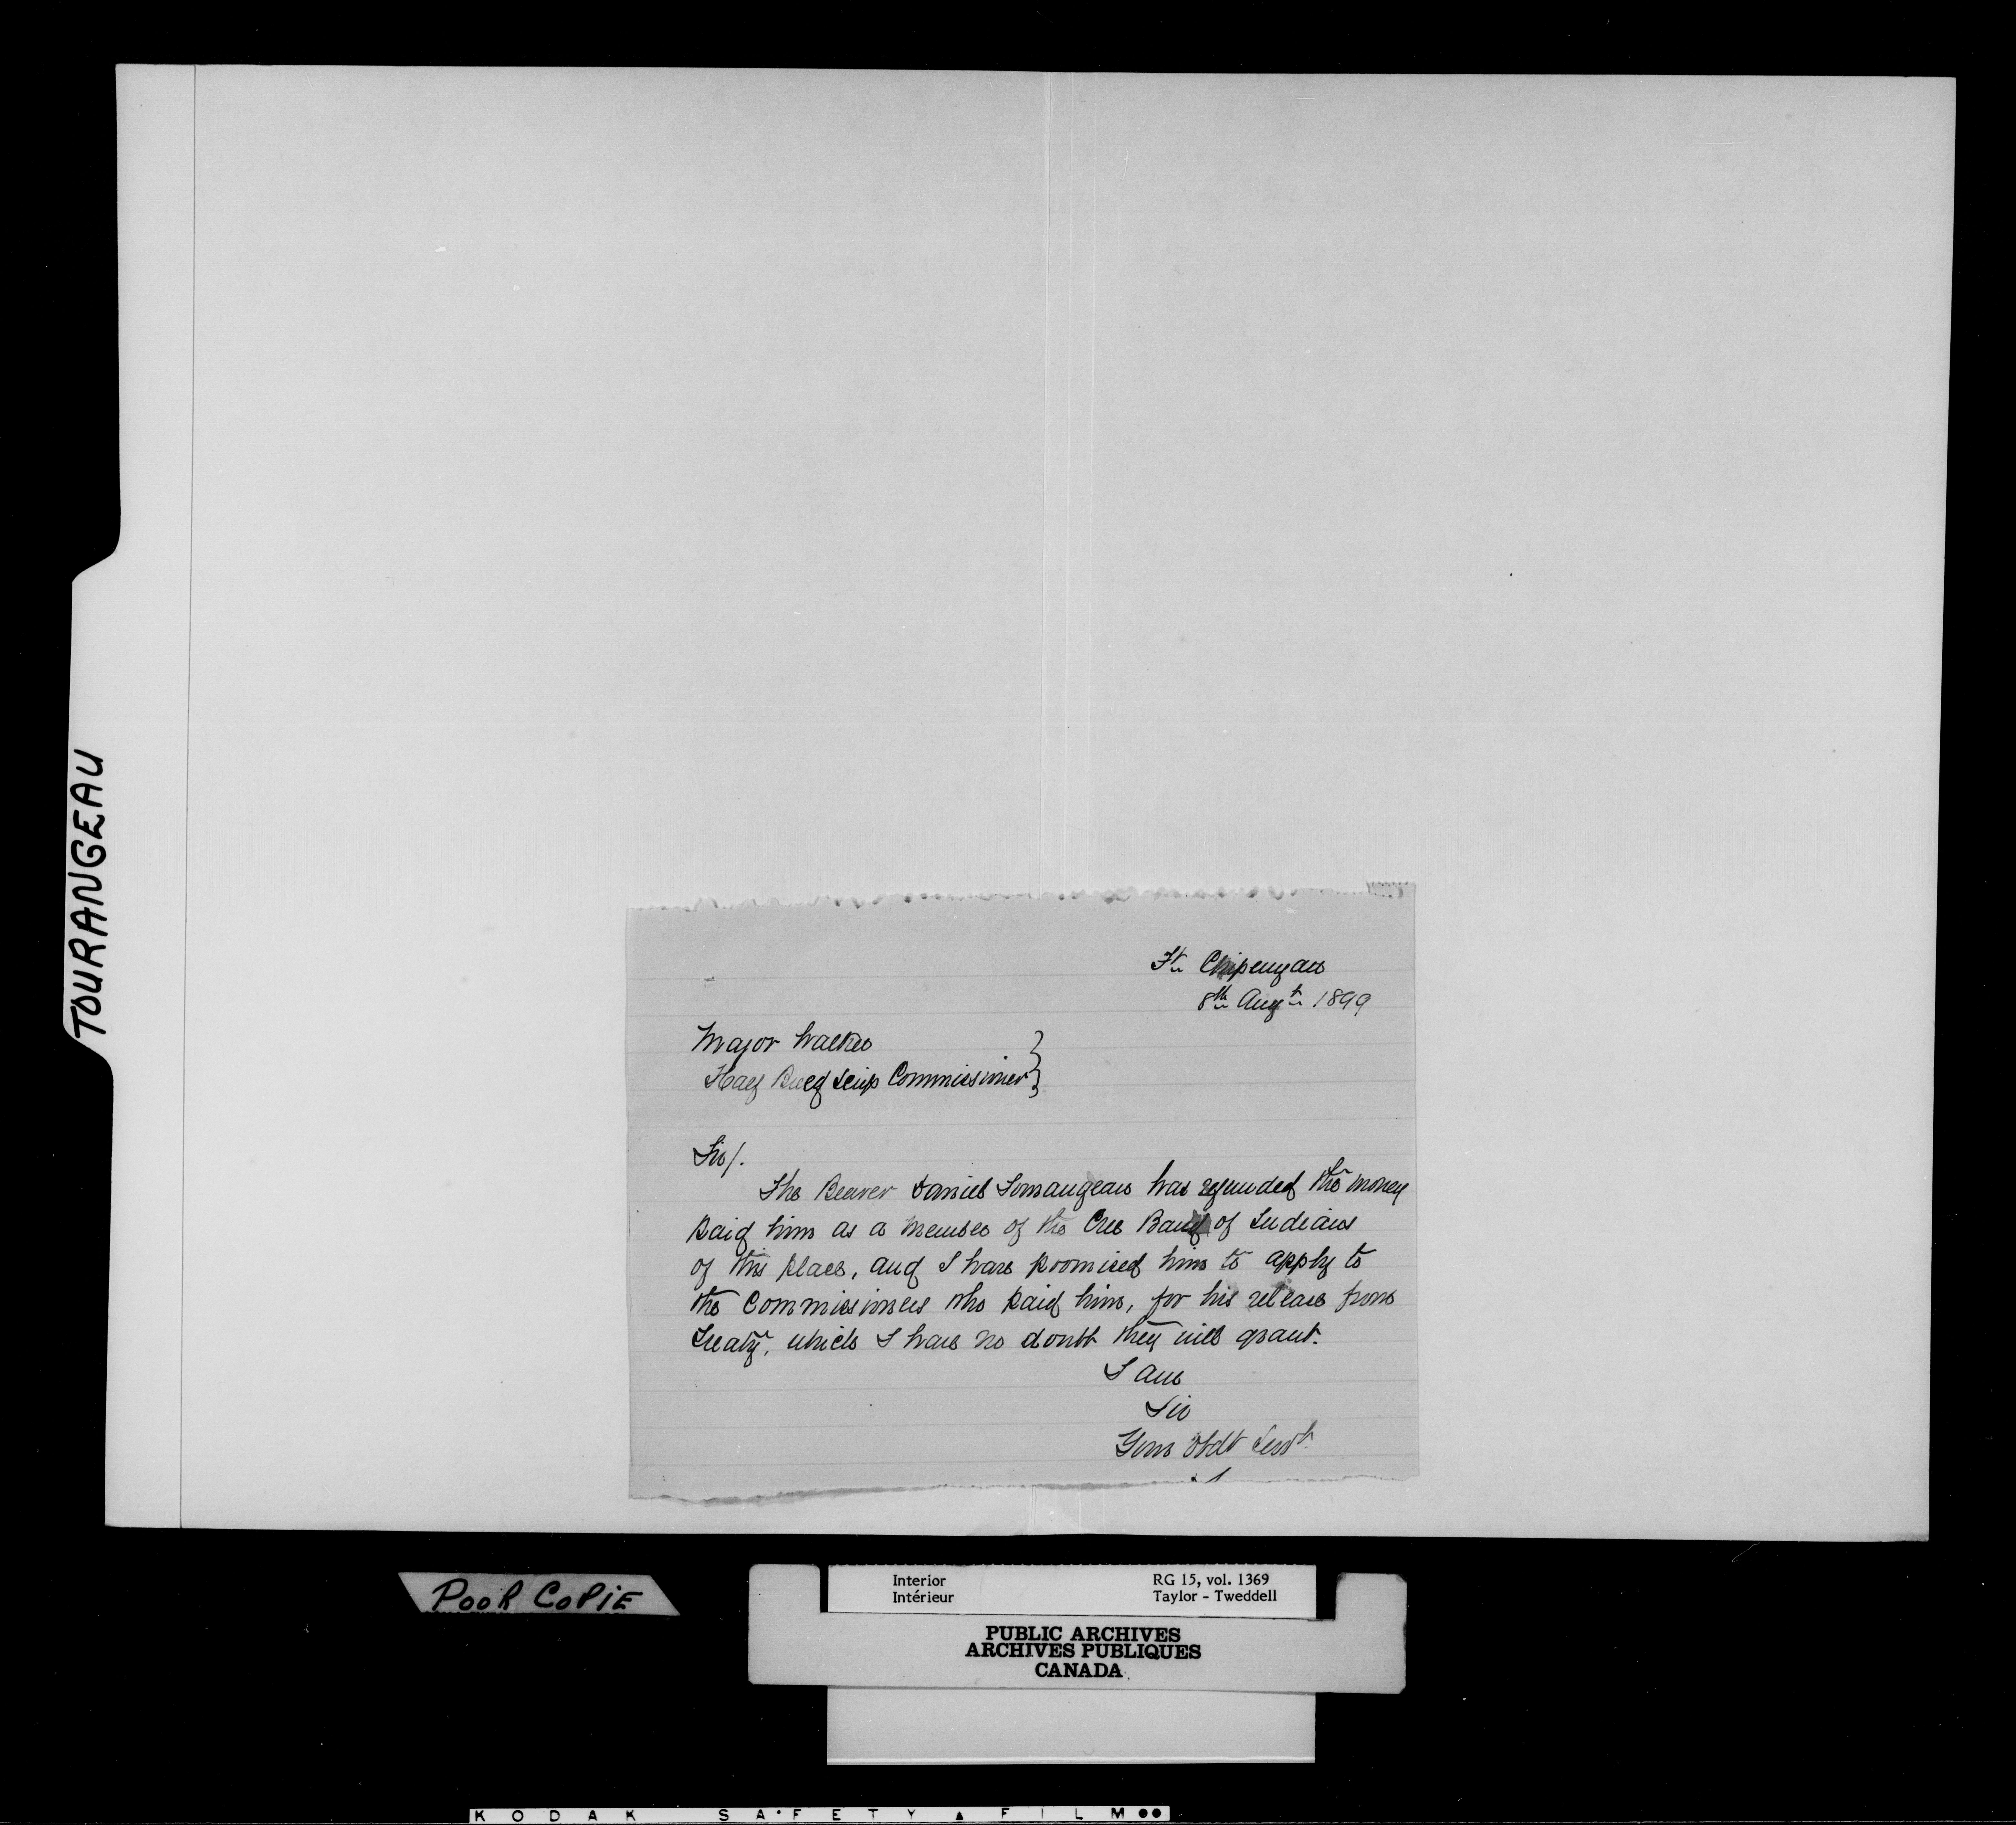 TOURANGEAU
Ft. Chipeuyan
8th Augt. 1899
Major Walker
Half Breed Scrip Commissioner
Sir/.
The Bearer Daniel Tourangeau has refunded the money
paid him as a member of the Cree Band of Indians
of this place, and I have promised him to apply to
the Commissioners who paid him, for his release from
Treaty, which I have no doubt they will grant.
I am
Sir
Your Obdt Servt.
POOR COPIE
Interior RG 15, vol. 1369
Intérieur Taylor - Tweddell
PUBLIC ARCHIVES
ARCHIVES PUBLIQUES
CANADA
KODAK SAFETY FILM